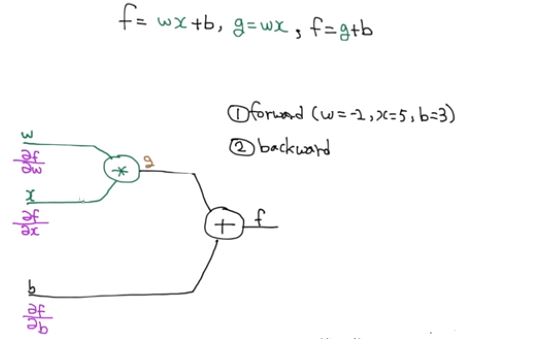 f = wx+b, g=wx, f=g+b
① forward (w=-2, x=5, b=3)
② backward
w
∂f/∂w
*
g
x
∂f/∂x
+
f
b
∂f/∂b